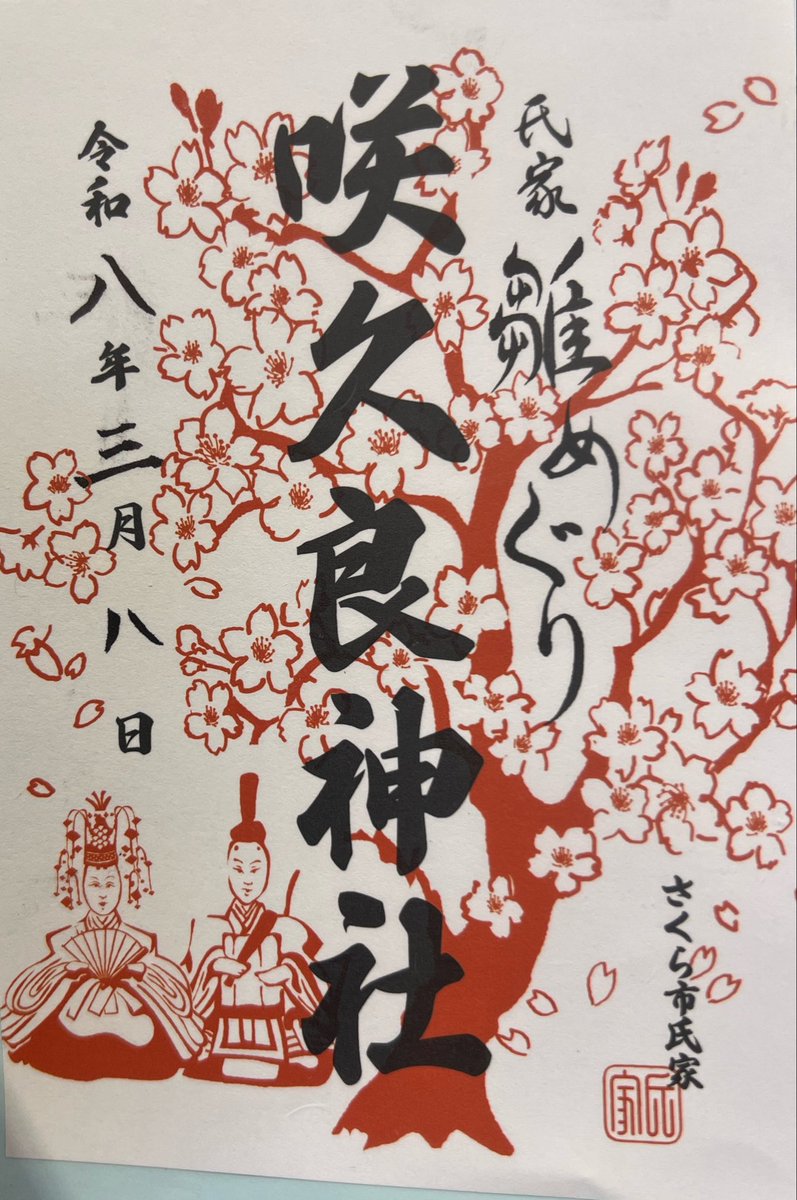 氏家 雛めぐり
さくら市氏家
氏家
咲久良神社
令和八年三月八日